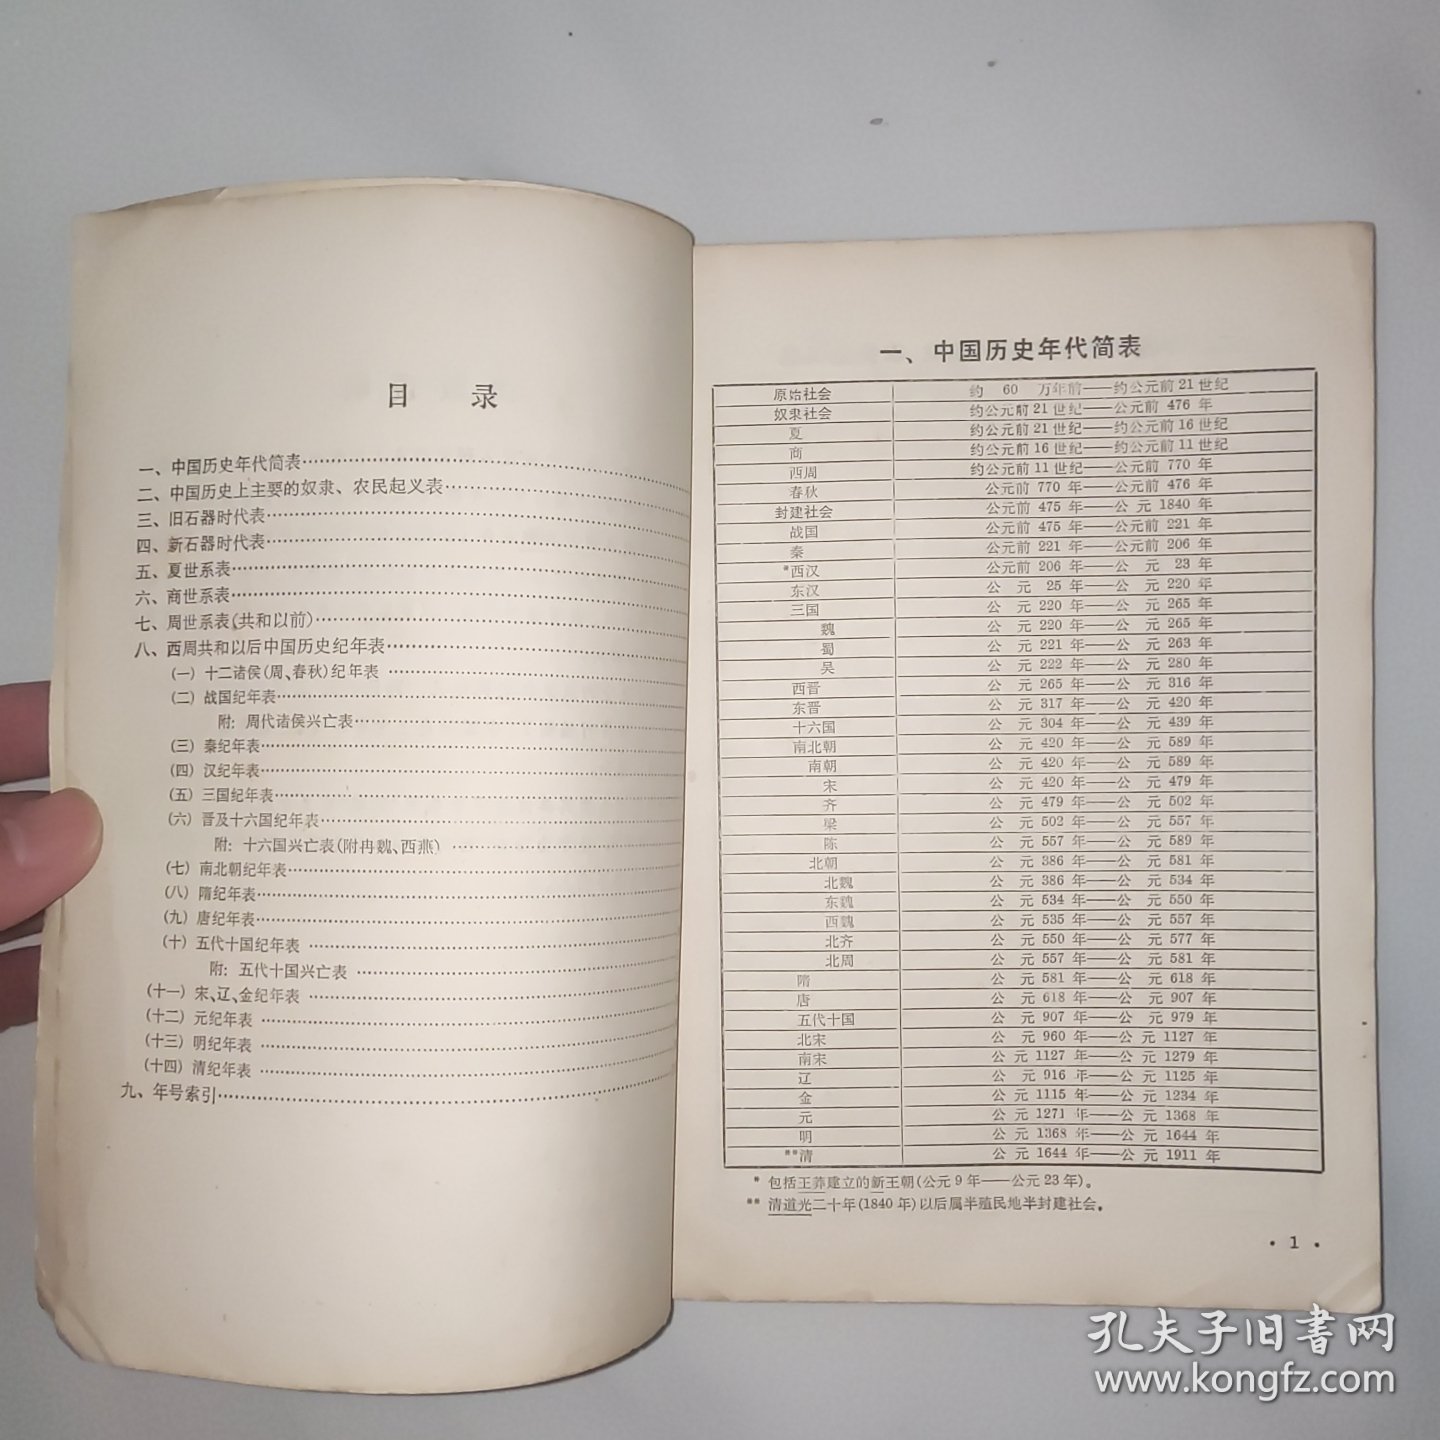 目 录
一、中国历史年代简表
二、中国历史上主要的奴隶、农民起义表
三、旧石器时代表
四、新石器时代表
五、夏世系表
六、商世系表
七、周世系表(共和以前)
八、西周共和以后中国历史纪年表
(一) 十二诸侯(周、春秋)纪年表
(二) 战国纪年表
附: 周代诸侯兴亡表
(三) 秦纪年表
(四) 汉纪年表
(五) 三国纪年表
(六) 晋及十六国纪年表
附: 十六国兴亡表(附冉魏、西燕)
(七) 南北朝纪年表
(八) 隋纪年表
(九) 唐纪年表
(十) 五代十国纪年表
附: 五代十国兴亡表
(十一) 宋、辽、金纪年表
(十二) 元纪年表
(十三) 明纪年表
(十四) 清纪年表
九、年号索引
一、中国历史年代简表
原始社会 约 60 万年前——约公元前21世纪
奴隶社会 约公元前21世纪——公元前 476 年
夏 约公元前21世纪——约公元前16世纪
商 约公元前16世纪——约公元前11世纪
西周 约公元前11世纪——公元前 770 年
春秋 公元前 770 年——公元前 476 年
封建社会 公元前 475 年——公 元 1840 年
战国 公元前 475 年——公元前 221 年
秦 公元前 221 年——公元前 206 年
*西汉 公元前 206 年——公 元 23 年
东汉 公 元 25 年——公 元 220 年
三国 公 元 220 年——公 元 265 年
魏 公 元 220 年——公 元 265 年
蜀 公 元 221 年——公 元 263 年
吴 公 元 222 年——公 元 280 年
西晋 公 元 265 年——公 元 316 年
东晋 公 元 317 年——公 元 420 年
十六国 公 元 304 年——公 元 439 年
南北朝 公 元 420 年——公 元 589 年
南朝 公 元 420 年——公 元 589 年
宋 公 元 420 年——公 元 479 年
齐 公 元 479 年——公 元 502 年
梁 公 元 502 年——公 元 557 年
陈 公 元 557 年——公 元 589 年
北朝 公 元 386 年——公 元 581 年
北魏 公 元 386 年——公 元 534 年
东魏 公 元 534 年——公 元 550 年
西魏 公 元 535 年——公 元 557 年
北齐 公 元 550 年——公 元 577 年
北周 公 元 557 年——公 元 581 年
隋 公 元 581 年——公 元 618 年
唐 公 元 618 年——公 元 907 年
五代十国 公 元 907 年——公 元 979 年
北宋 公 元 960 年——公 元 1127 年
南宋 公 元 1127 年——公 元 1279 年
辽 公 元 916 年——公 元 1125 年
金 公 元 1115 年——公 元 1234 年
元 公 元 1271 年——公 元 1368 年
明 公 元 1368 年——公 元 1644 年
**清 公 元 1644 年——公 元 1911 年
* 包括王莽建立的新王朝(公元 9 年——公元 23 年)。
** 清道光二十年(1840 年)以后属半殖民地半封建社会。
· 1 ·
孔夫子旧书网
www.kongfz.com